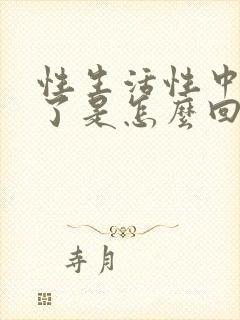 性生活性中
了是怎麼回
寺月